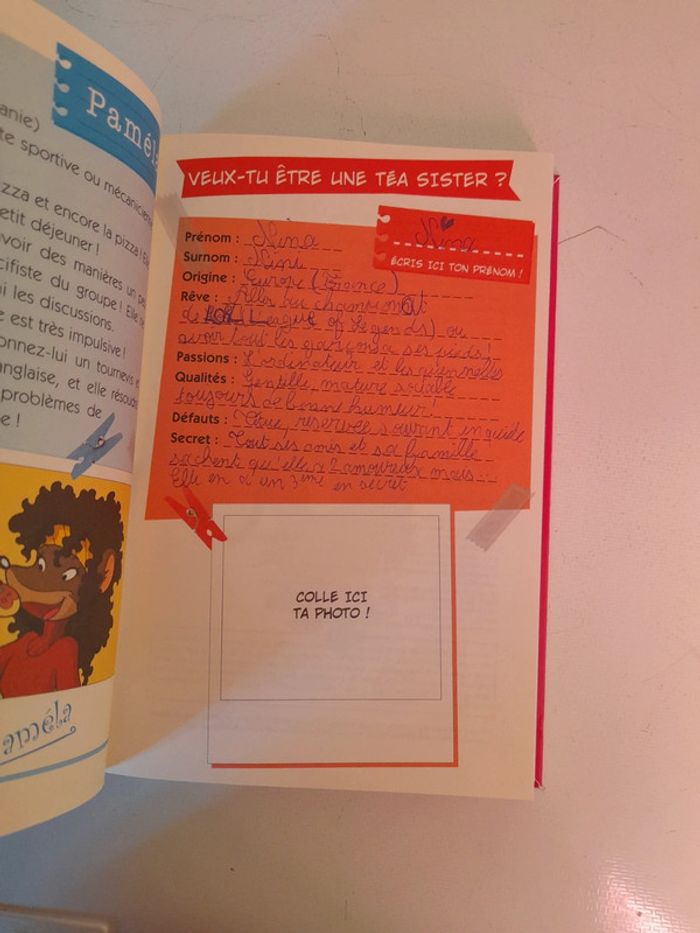 Paméla
anie)
te sportive ou mécanicienne
zza et encore la pizza !
etit déjeuner !
voir des manières un pe
cifiste du groupe ! Elle
i les discussions.
e est très impulsive !
onnez-lui un tournevis
anglaise, et elle résoudr
problèmes de
e !
améla
VEUX-TU ÊTRE UNE TÉA SISTER ?
Nina
ÉCRIS ICI TON PRÉNOM !
Prénom : Nina
Surnom : Nini
Origine : Europe (France)
Rêve : Aller au championat
de League of Legends) ou
avoir tout les garçons a ses pieds !
Passions : L'ordinateur et les
Qualités : Gentille, mature sociable
toujours de bonne humeur !
Défauts : reservée souvent
Secret : Tout ses amis et sa famille
sachent qu'elle a 2 amoureux mais
Elle en a un 3ème en secret
COLLE ICI
TA PHOTO !